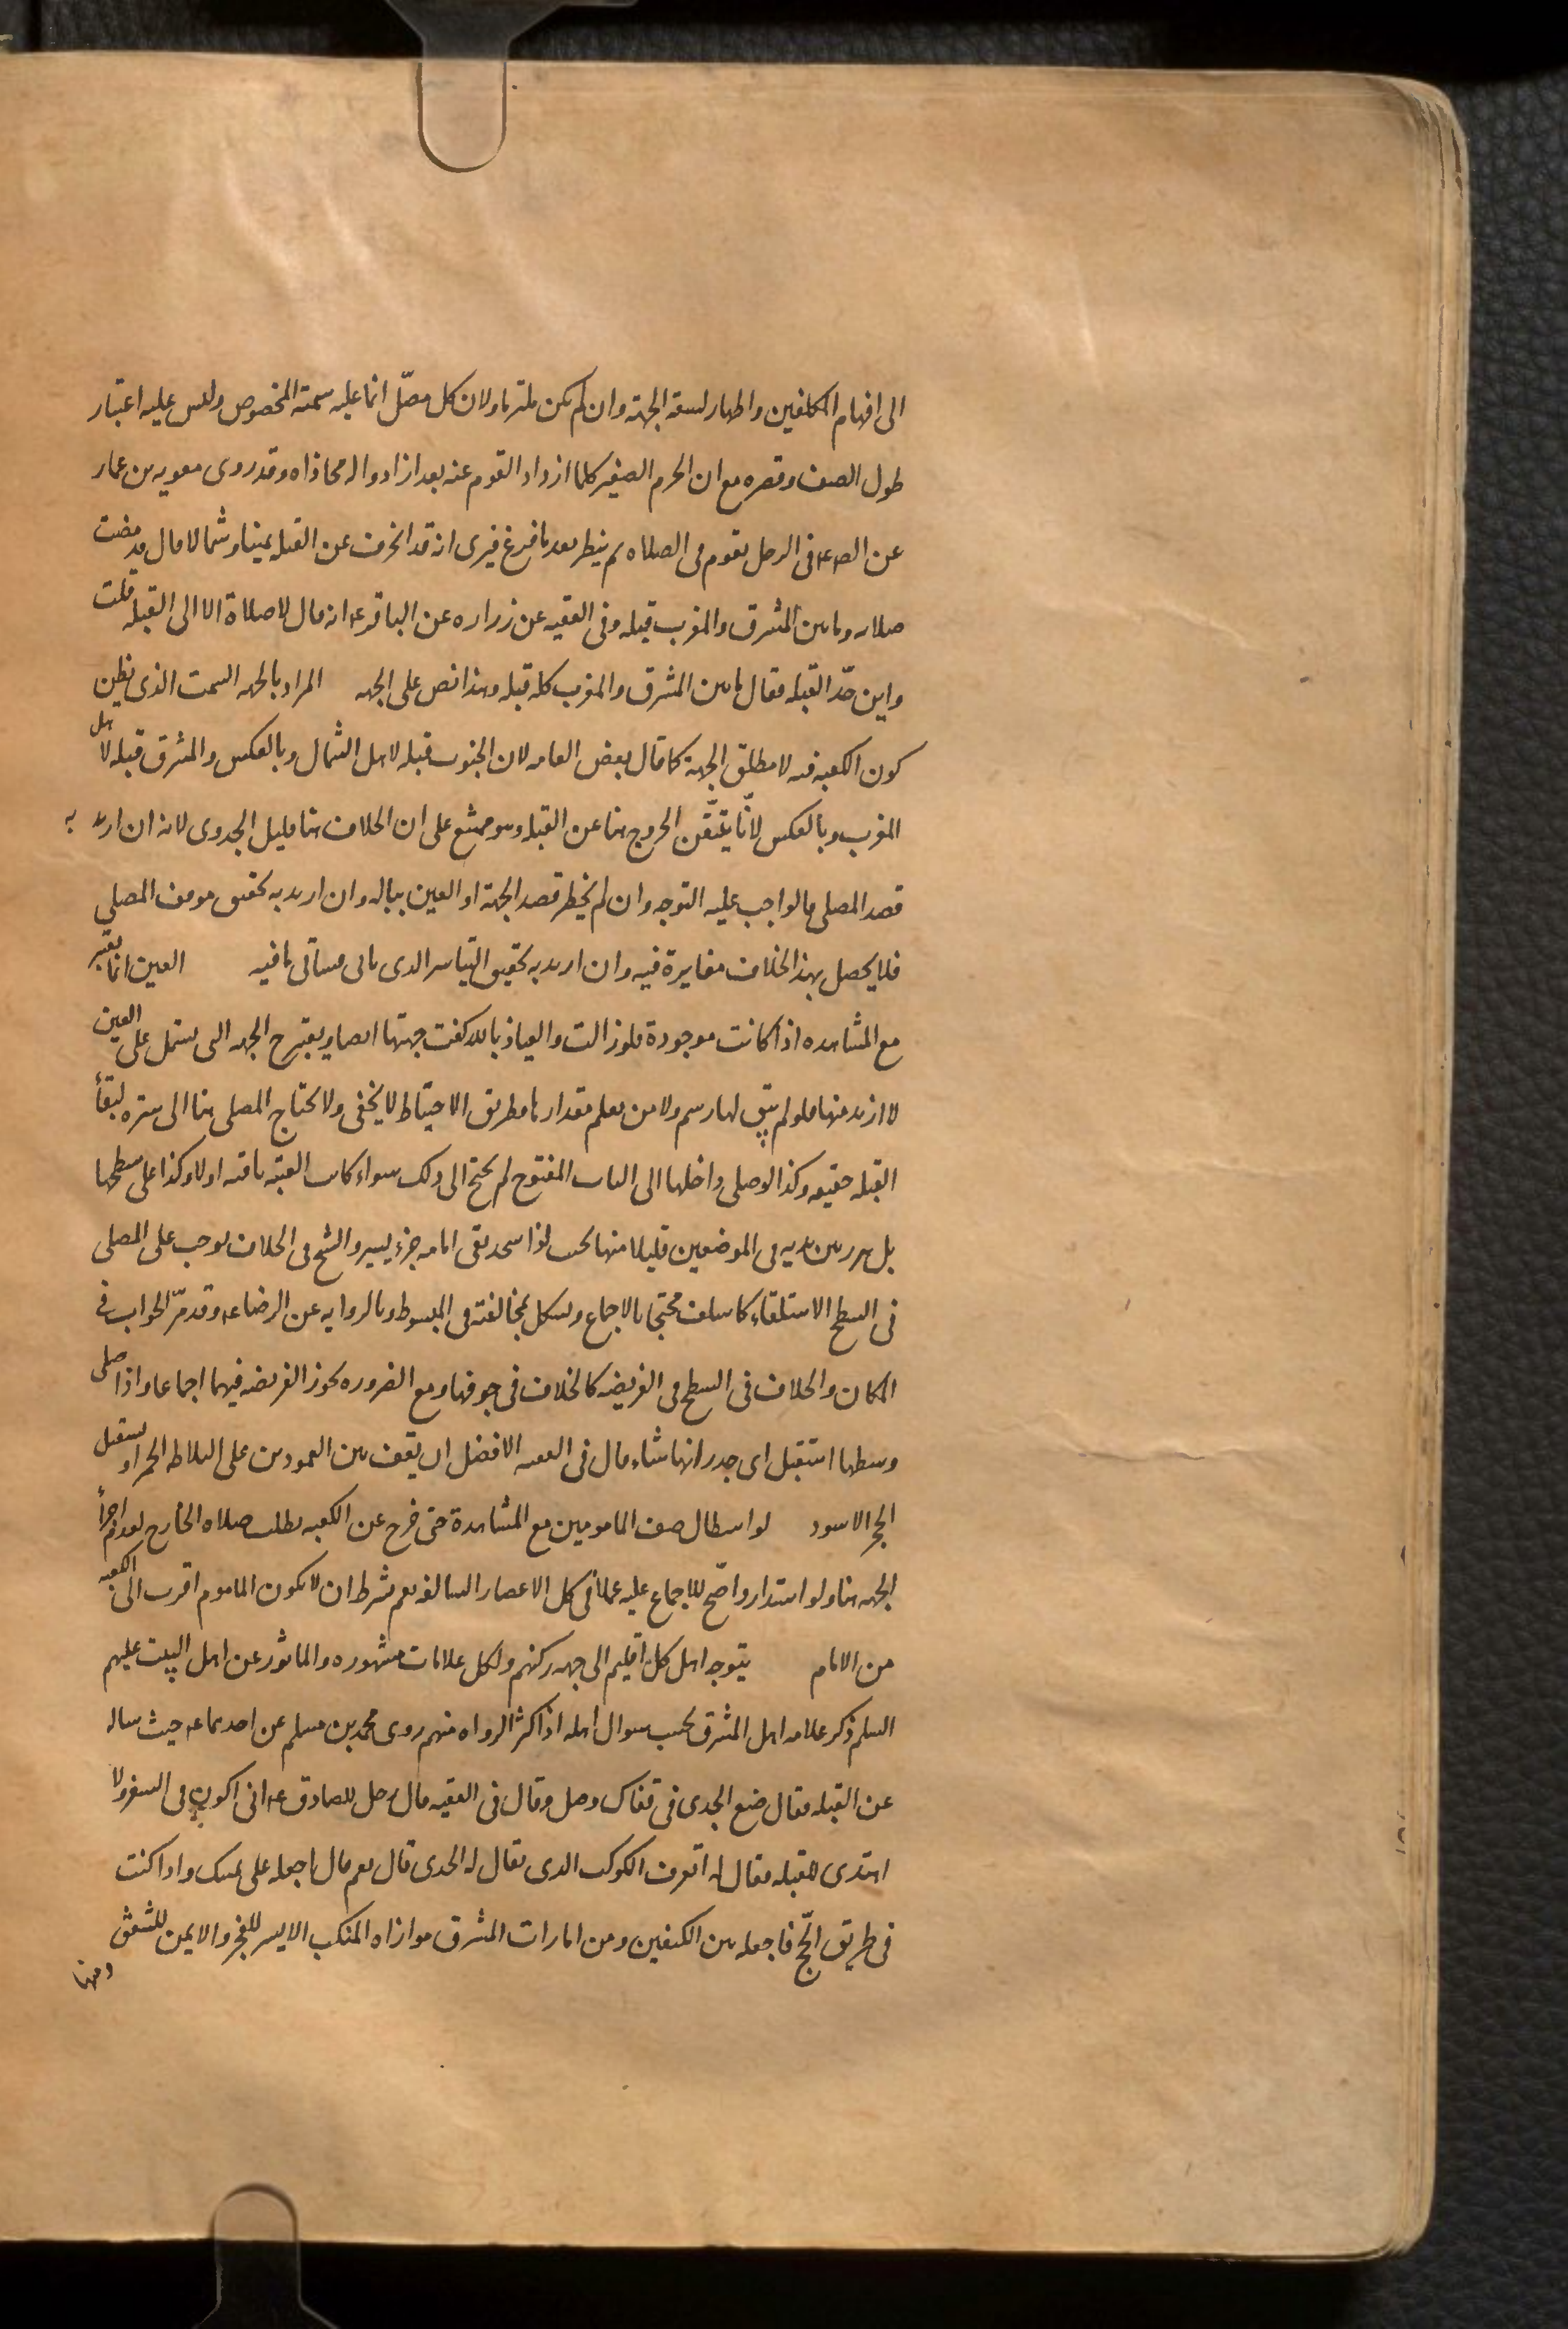 الى افهام المكلفين واظهار لسعة الجهة وان لم يكن ملتزما ولان كل مصلّ انما عليه سمته المخصوص وليس عليه اعتبار
طول الصف وقصره مع ان الحرم الصغير كلما ازداد القوم عنه بعدا ازدادوا له محاذاه وقد روى معويه بن عمار
عن الص ع فى الرجل يقوم فى الصلاه ثم ينظر بعد ما فرغ فيرى انه قد انحرف عن القبله يمينا وشمالا قال قد مضت
صلاته وما بين المشرق والمغرب قبله وفى الفقيه عن زراره عن الباقر ع انه قال لا صلاة الا الى القبله قلت
واين حدّ القبله فقال ما بين المشرق والمغرب كله قبله وهذا نص على الجهه المراد بالجهه السمت الذى يظن
كون الكعبه فيه لا مطلق الجهة كما قال بعض العامه لان الجنوب قبله لاهل الشمال وبالعكس والمشرق قبله لاهل
المغرب وبالعكس لانّا نتيقّن الخروج هنا عن القبله وهو ممتنع على ان الخلاف هنا قليل الجدوى لانه ان اريد به
قصد المصلى فالواجب عليه التوجه وان لم يخطر قصد الجهة او العين بباله وان اريد به تحقيق موقف المصلى
فلا يحصل بهذا الخلاف مغايرة فيه وان اريد به تحقيق التياسر الذى ياتى فستاتى ما فيه العين انما يعتبر
مع المشاهده اذا كانت موجودة فلو زالت والعياذ بالله كفت جهتها ايضا ويعتبر ح الجهه التى يشتمل على العين
لا ازيد منها فلو لم يبق لها رسم ولا من يعلم مقدارها فطريق الاحتياط لا يخفى ولا يحتاج المصلى هنا الى ستره لبقاء
القبله حقيقه وكذا لو صلى داخلها الى الباب المفتوح لم يحتج الى ذلك سواء كانت العتبه باقيه او لا وكذا على سطحها
بل يبرز بين يديه فى الموضعين قليلا منها بحيث اذا سجد بقى امامه جزء يسير والشيخ فى الخلاف يوجب على المصلى
فى السطح الاستلقاء كما سلف محتجا بالاجماع ويشكل بمخالفته فى المبسوط وبالروايه عن الرضا ع وقد مرّ الجواب فى
المكان والخلاف فى السطح فى الفريضه كالخلاف فى جوفها ومع الضروره يجوز الفريضه فيهما اجماعا واذا صلى
وسطها استقبل اى جدرانها شاء قال فى الفقيه الافضل ان يقف بين العمودين على البلاطه الحمرا ويستقبل
الحجر الاسود لو استطال صف المامومين مع المشاهدة حتى خرج عن الكعبه بطلت صلاه الخارج لعدم اجزاء
الجهه هنا ولو استداروا صّح للاجماع عليه عملا فى كل الاعصار السالفه نعم يشترط ان لا يكون الماموم اقرب الى الكعبه
من الامام يتوجه اهل كل اقليم الى جهه ركنهم ولكل علامات مشهوره والماثور عن اهل البيت عليهم
السلم ذكر علامه اهل المشرق بحسب سوال اهله اذ اكثر الرواه منهم روى محمد بن مسلم عن احدهما ع حيث ساله
عن القبله فقال ضع الجدى فى قفاك وصل وقال فى الفقيه قال رجل للصادق ع انى اكون فى السفر ولا
اهتدى للقبله فقال له اتعرف الكوكب الذى يقال له الجدى قال نعم قال اجعله على يمينك واذا كنت
فى طريق الحّج فاجعله بين الكتفين ومن امارات المشرق موازاه المنكب الايسر للفجر والايمن للشفق
ومنها